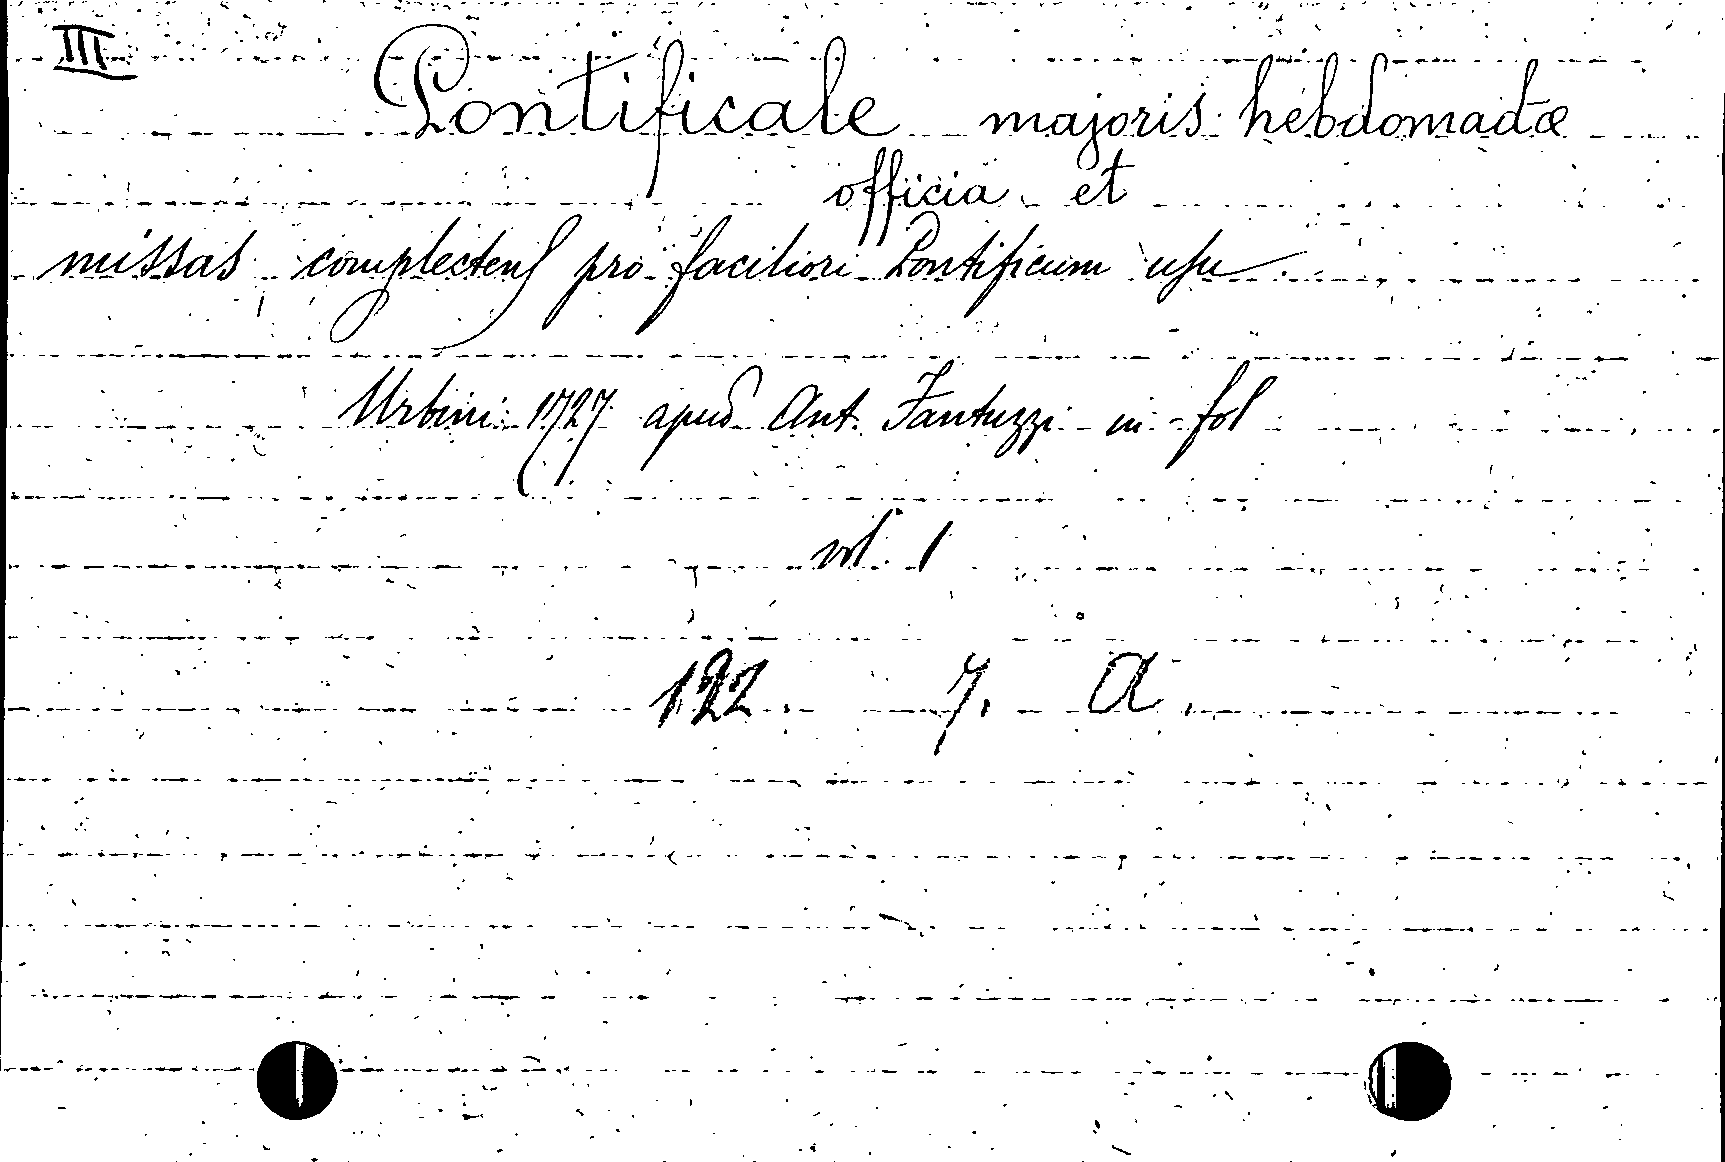 III
Pontificale majoris hebdomadæ
officia et
missas complectens pro faciliori Pontificum usu
Urbini 1727 apud Ant. Fantuzzi in fol
vol. 1
122. 7. A.